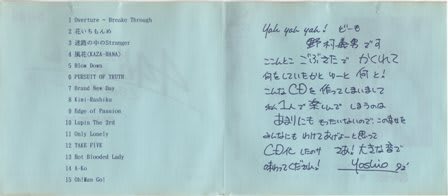 1 Overture - Breake Through
2 花いちもんめ
3 迷路の中のStranger
4 風花(KAZA-HANA)
5 Blow Down
6 PURSUIT OF TRUTH
7 Brand New Day
8 Kimi-Rashiku
9 Edge of Passion
10 Lupin The 3rd
11 Only Lonely
12 TAKE FIVE
13 Hot Blooded Lady
14 A-Ko
15 Oh!Man Go!
Yah yah yah! どーも
野村義男です
ここんとこ ごぶさたで かくれて
何をしていたかと ゆーと 何と!
こんな CDを 作ってしまいまして
私1人で 楽しんで しまうのは
あまりにも もったいないので、この幸せを
みんなにも わけてあげよーと思って
CD化 したのサ さあ! 大きな音で
味わってください!
Yoshio 92'